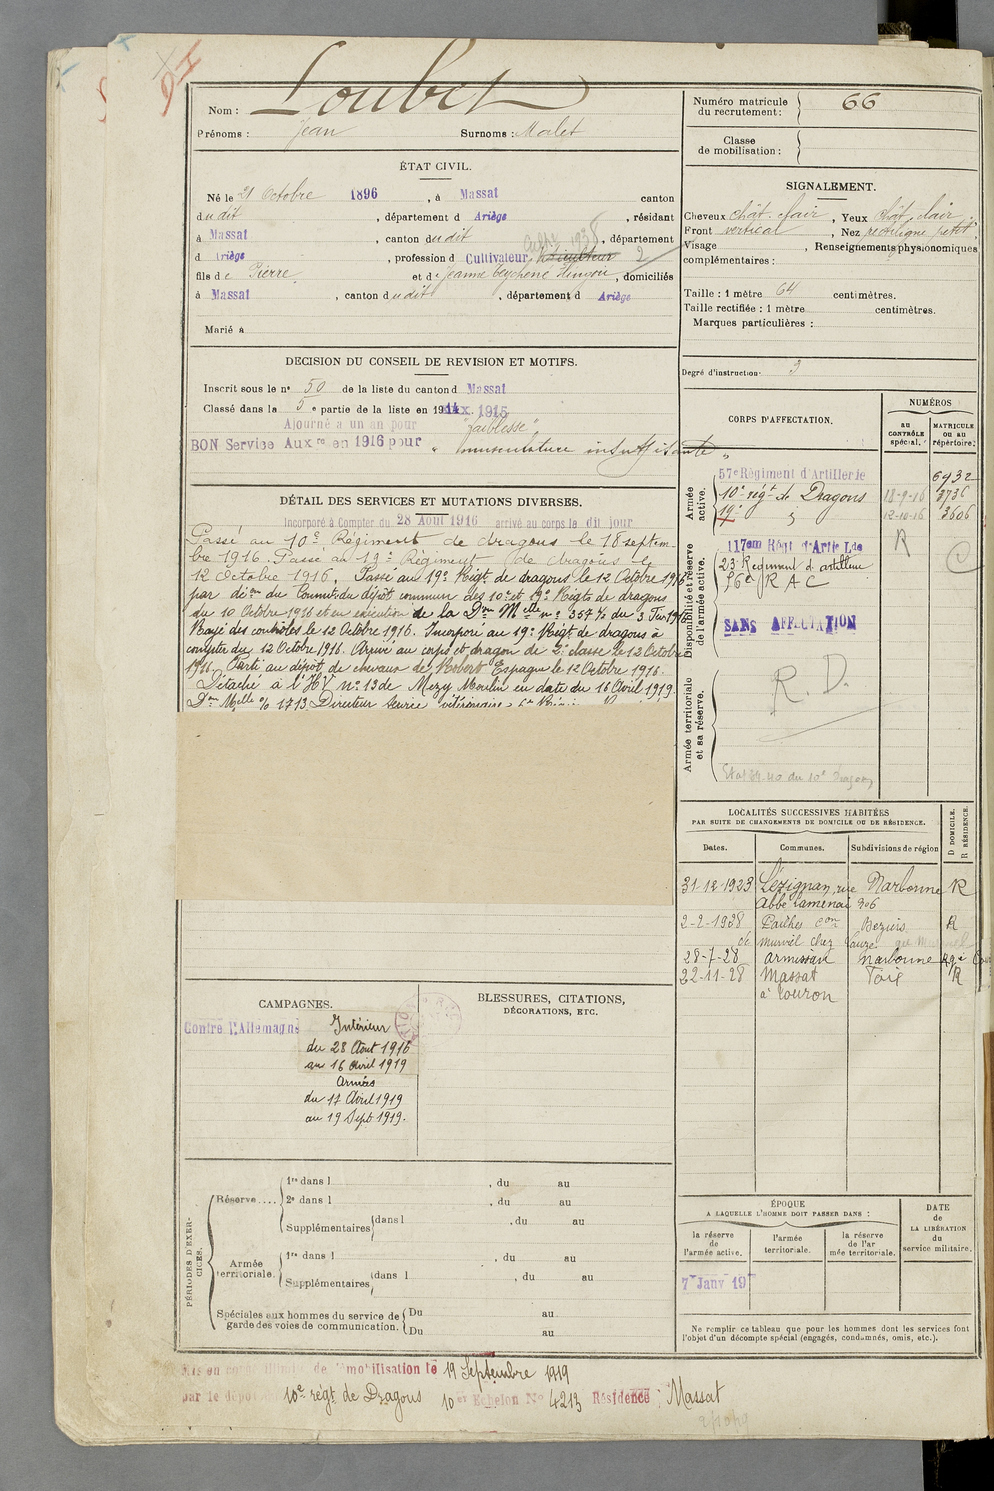 Nom : Loubet
Prénoms : Jean Surnoms : Malet
ÉTAT CIVIL.
Né le 21 Octobre 1896, à Massat canton
dudit, département d Ariège, résidant
à Massat, canton dudit, département
d Ariège, profession d Cultivateur 2
fils de Pierre et de Jeanne, domiciliés
à Massat, canton dudit, département d Ariège
Marié à
DECISION DU CONSEIL DE REVISION ET MOTIFS.
Inscrit sous le n° 50 de la liste du canton d Massat
Classé dans la 5e partie de la liste en 1915
Ajourné a un an pour "faiblesse"
BON Service Auxre en 1916 pour "musculature insuffisante"
DÉTAIL DES SERVICES ET MUTATIONS DIVERSES.
Incorporé à Compter du 28 Aout 1916 arrivé au corps le dit jour
Passé au 10e Régiment de dragons le 18 septem-
bre 1916. Passé au 19e Régiment de dragons le
12 Octobre 1916. Passé au 19e Régt de dragons le 12 Octobre 1916
par déon du Commt du dépôt commun des 10e et 19e Régts de dragons
du 10 Octobre 1916 et en exécution de la Don Melle n° 357 du 3 1916
Rayé des contrôles le 12 Octobre 1916. Incorporé au 19e Régt de dragons à
compter du 12 Octobre 1916. Arrivé au corps et dragon de 2e classe le 12 Octobre
1916. Parti au dépôt de chevaux de Espagne le 12 Octobre 1916.
Détaché à l'HV n° 13 de Mezy Moulin en date du 16 Avril 1919.
Don Melle % 1713 Directeur
CAMPAGNES.
Contre l'Allemagne
Intérieur
du 28 Aout 1916
au 16 Avril 1919
Armées
du 17 Avril 1919
au 19 Sept 1919.
BLESSURES, CITATIONS,
DÉCORATIONS, ETC.
PÉRIODES D'EXERCICES.
Réserve....
1re dans l , du au
2e dans l , du au
Supplémentaires dans l , du au
Armée territoriale.
1re dans l , du au
Supplémentaires dans l , du au
Spéciales aux hommes du service de
garde des voies de communication.
Du au
Du au
de démobilisation le 19 Septembre 1919
par le dépôt 10e régt de Dragons 10e Echelon N° 4213 Résidence : Massat
Numéro matricule
du recrutement : 66
Classe
de mobilisation :
SIGNALEMENT.
Cheveux chât. clair, Yeux chât. clair
Front vertical, Nez rectiligne petit
Visage , Renseignements physionomiques
complémentaires :
Taille : 1 mètre 64 centimètres.
Taille rectifiée : 1 mètre centimètres.
Marques particulières :
Degré d'instruction. 3
CORPS D'AFFECTATION.
NUMÉROS
AU CONTRÔLE spécial.
MATRICULE OU AU répertoire.
Armée active.
57e Régiment d'Artillerie 6932
10e régt de Dragons 18-9-16 3736
19e " 12-10-16 3606
Disponibilité et réserve de l'armée active.
117em Régt d'Artie Lde R
23e Régiment d'artillerie
56e R A C
SANS AFFECTATION
Armée territoriale et sa réserve.
R.D.
LOCALITÉS SUCCESSIVES HABITÉES
PAR SUITE DE CHANGEMENTS DE DOMICILE OU DE RÉSIDENCE.
D DOMICILE. R RÉSIDENCE.
Dates. Communes. Subdivisions de région
31-12-1923 Lézignan, rue Narbonne R
Abbé Lamenai 206
2-2-1928 Pailhes con Beziers R
de murviel chez Cauze
28-7-28 Armissan Narbonne
22-11-28 Massat Foix R
à Touron
ÉPOQUE
A LAQUELLE L'HOMME DOIT PASSER DANS :
la réserve de l'armée active.
l'armée territoriale.
la réserve de l'armée territoriale.
DATE de LA LIBÉRATION du service militaire.
7 Janv 19
Ne remplir ce tableau que pour les hommes dont les services font
l'objet d'un décompte spécial (engagés, condamnés, omis, etc.).